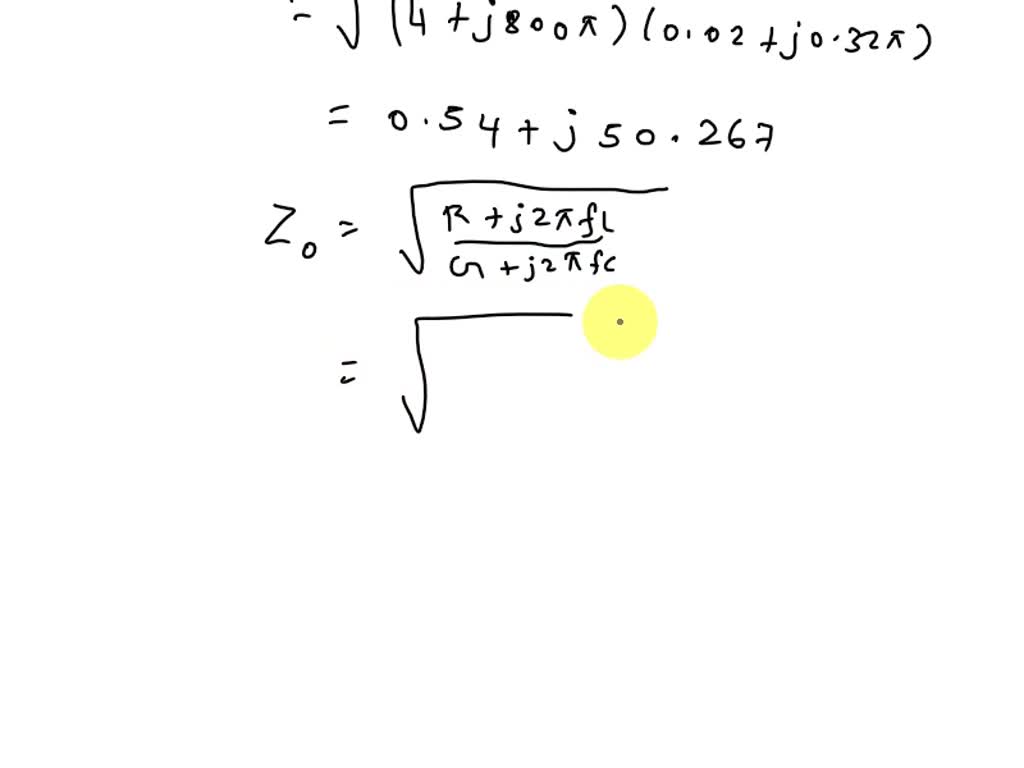 = √(4 + j800π)(0.02 + j0.32π)
= 0.54 + j50.267
Z₀ = √
R + j2πfL
G + j2πfC
= √